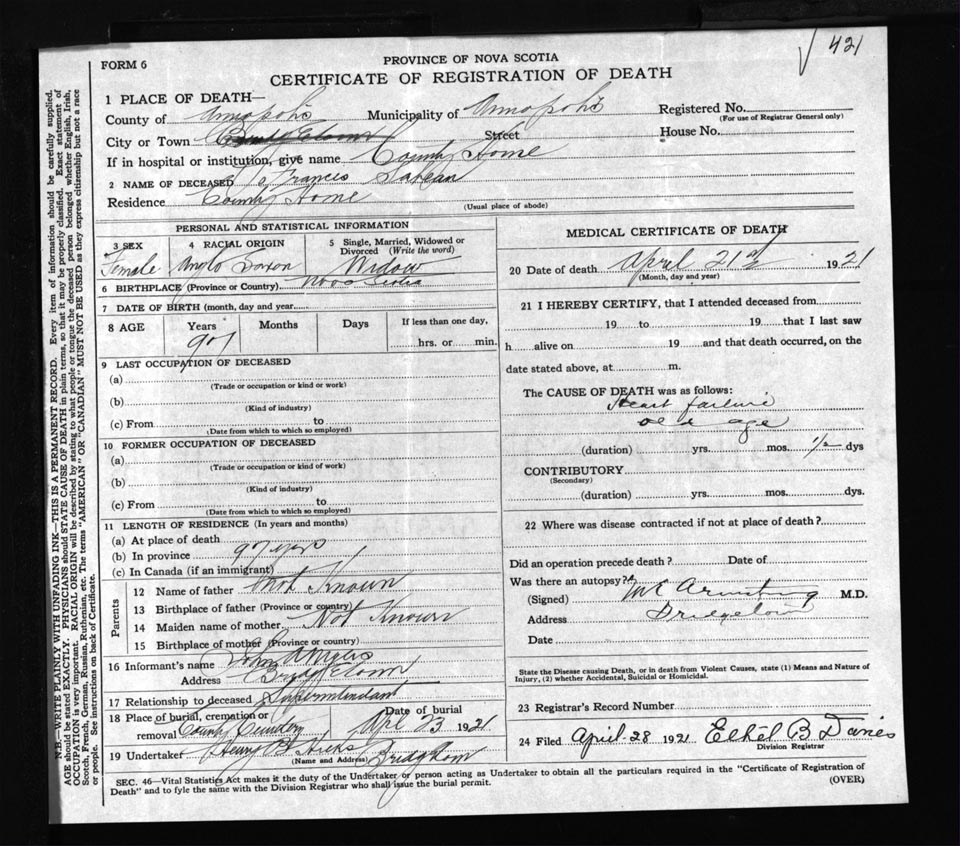 421
FORM 6
PROVINCE OF NOVA SCOTIA
CERTIFICATE OF REGISTRATION OF DEATH
1 PLACE OF DEATH—
County of Annapolis Municipality of Annapolis Registered No.
(For use of Registrar General only)
City or Town Bridgetown Street House No.
If in hospital or institution, give name County Home
2 NAME OF DECEASED Frances
Residence County Home
(Usual place of abode)
PERSONAL AND STATISTICAL INFORMATION
3 SEX 4 RACIAL ORIGIN 5 Single, Married, Widowed or Divorced (Write the word)
Female Anglo Saxon Widow
6 BIRTHPLACE (Province or Country) Nova Scotia
7 DATE OF BIRTH (month, day and year)
8 AGE Years Months Days If less than one day,
97 hrs. or min.
9 LAST OCCUPATION OF DECEASED
(a)
(Trade or occupation or kind or work)
(b)
(Kind of industry)
(c) From to
(Date from which to which so employed)
10 FORMER OCCUPATION OF DECEASED
(a)
(Trade or occupation or kind of work)
(b)
(Kind of industry)
(c) From to
(Date from which to which so employed)
11 LENGTH OF RESIDENCE (In years and months)
(a) At place of death
(b) In province 97 years
(c) In Canada (if an immigrant)
Parents
12 Name of father Not Known
13 Birthplace of father (Province or country)
14 Maiden name of mother Not Known
15 Birthplace of mother (Province or country)
16 Informant's name John A Myers
Address Bridgetown
17 Relationship to deceased Superintendant
18 Place of burial, cremation or removal County Cemetery Date of burial Apl 23 1921
19 Undertaker Henry B Hicks Bridgetown
(Name and Address)
MEDICAL CERTIFICATE OF DEATH
20 Date of death April 21st 1921
(Month, day and year)
21 I HEREBY CERTIFY, that I attended deceased from
19 to 19 that I last saw
h alive on 19 and that death occurred, on the
date stated above, at m.
The CAUSE OF DEATH was as follows:
Heart failure
old age
(duration) yrs. mos. 1/2 dys
CONTRIBUTORY
(Secondary)
(duration) yrs. mos. dys.
22 Where was disease contracted if not at place of death?
Did an operation precede death? Date of
Was there an autopsy?
(Signed) M E Armstrong M.D.
Address Bridgetown
Date
State the Disease causing Death, or in death from Violent Causes, state (1) Means and Nature of
Injury, (2) whether Accidental, Suicidal or Homicidal.
23 Registrar's Record Number
24 Filed April 28 1921 Ethel B Davies
Division Registrar
SEC. 46—Vital Statistics Act makes it the duty of the Undertaker or person acting as Undertaker to obtain all the particulars required in the "Certificate of Registration of
Death" and to fyle the same with the Division Registrar who shall issue the burial permit. (OVER)
N.B.—WRITE PLAINLY WITH UNFADING INK—THIS IS A PERMANENT RECORD. Every item of information should be carefully supplied.
AGE should be stated EXACTLY. PHYSICIANS should STATE CAUSE OF DEATH in plain terms, so that it may be properly classified. Exact statement of
OCCUPATION is very important. RACIAL ORIGIN will be described by stating to what people or tongue the deceased person belonged whether English, Irish,
Scotch, French, German, Russian, Ruthenian, etc. The terms "AMERICAN" OR "CANADIAN" MUST NOT BE USED as they express citizenship but not a race
or people. See instructions on back of Certificate.